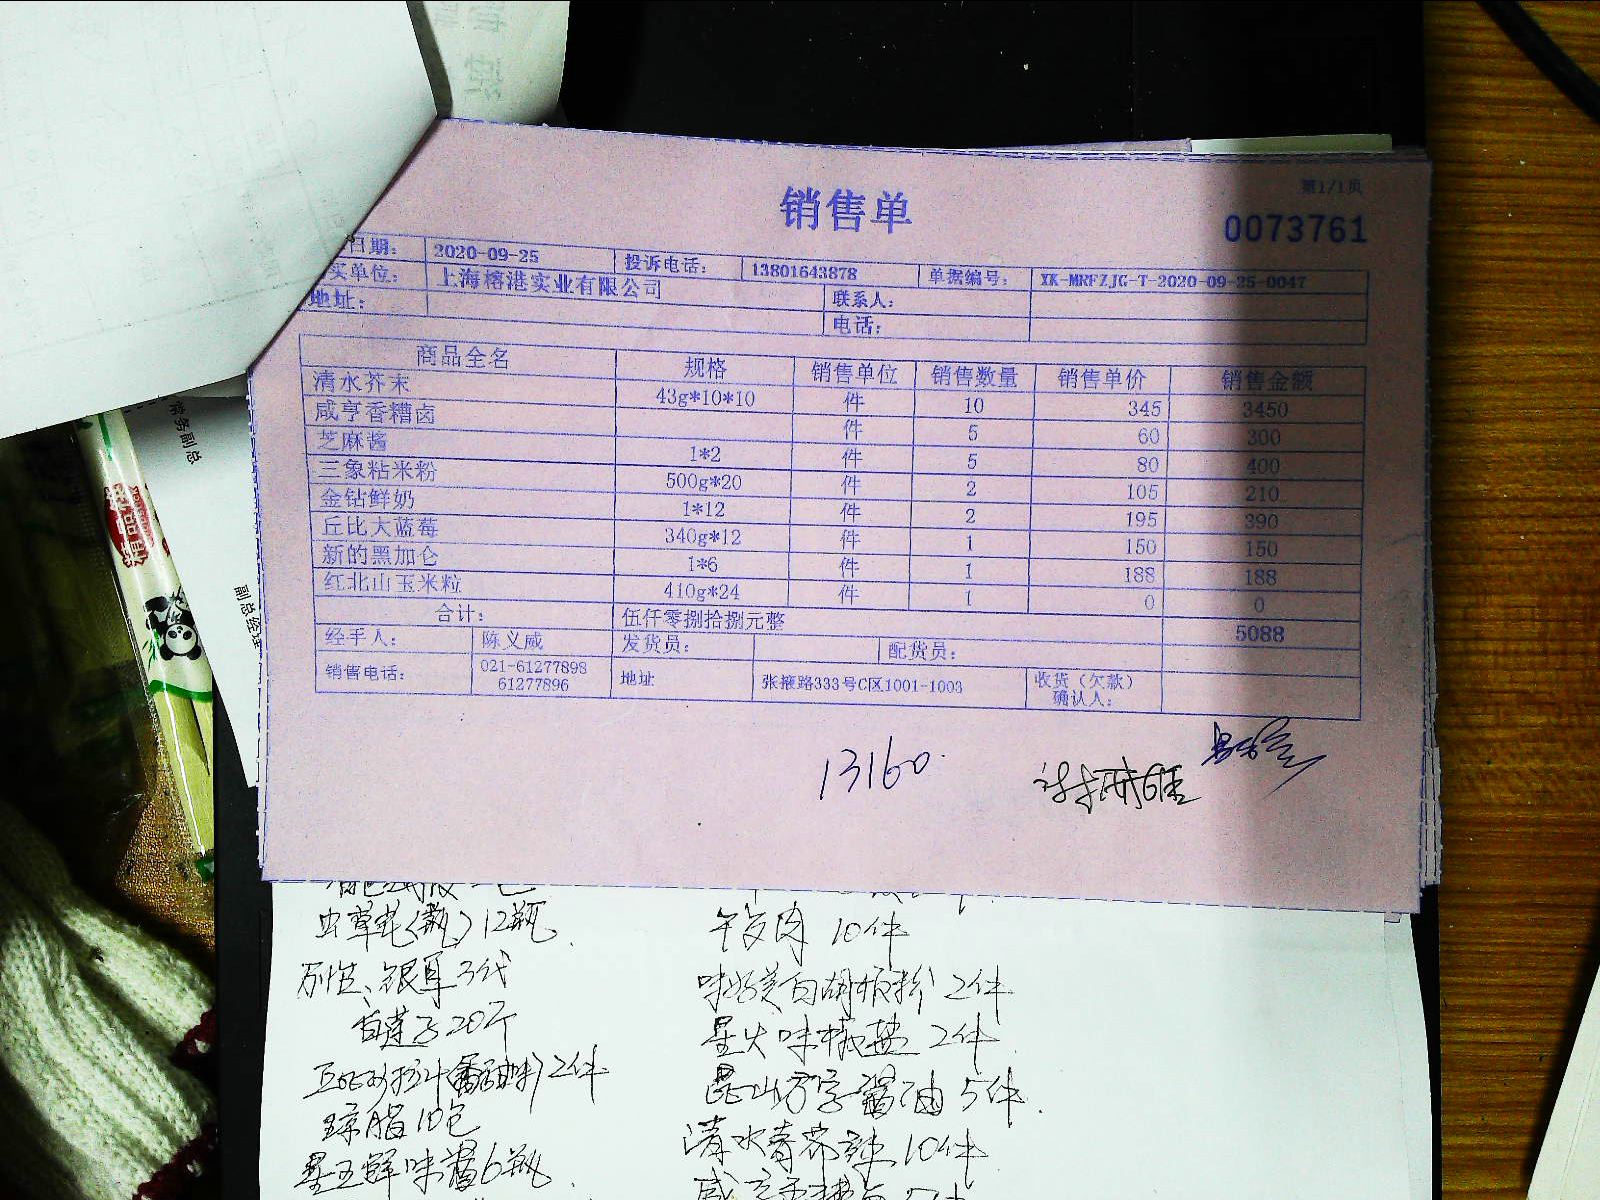 销售单
第1/1页
0073761
日期: 2020-09-25 投诉电话: 13801643878 单据编号: YK-MRFZJG-T-2020-09-25-0047
买单位: 上海榕港实业有限公司 联系人:
地址: 电话:
商品全名 规格 销售单位 销售数量 销售单价 销售金额
清水芥末 43g*10*10 件 10 345 3450
咸亨香糟卤 件 5 60 300
芝麻酱 1*2 件 5 80 400
三象粘米粉 500g*20 件 2 105 210
金钻鲜奶 1*12 件 2 195 390
丘比大蓝莓 340g*12 件 1 150 150
新的黑加仑 1*6 件 1 188 188
红北山玉米粒 410g*24 件 1 0 0
合计: 伍仟零捌拾捌元整 5088
经手人: 陈义威 发货员: 配货员:
销售电话: 021-61277898 61277896 地址 张掖路333号C区1001-1003 收货（欠款）确认人:
13160
副总经理
虫草花(瓶) 12瓶
午夜肉 10件
银耳3代
味好美白胡椒粉 2件
20个
星火味椒盐 2件
2件
昆山万字酱油 5件
琼脂10包
清水青芥辣 10件
鲜味酱6瓶